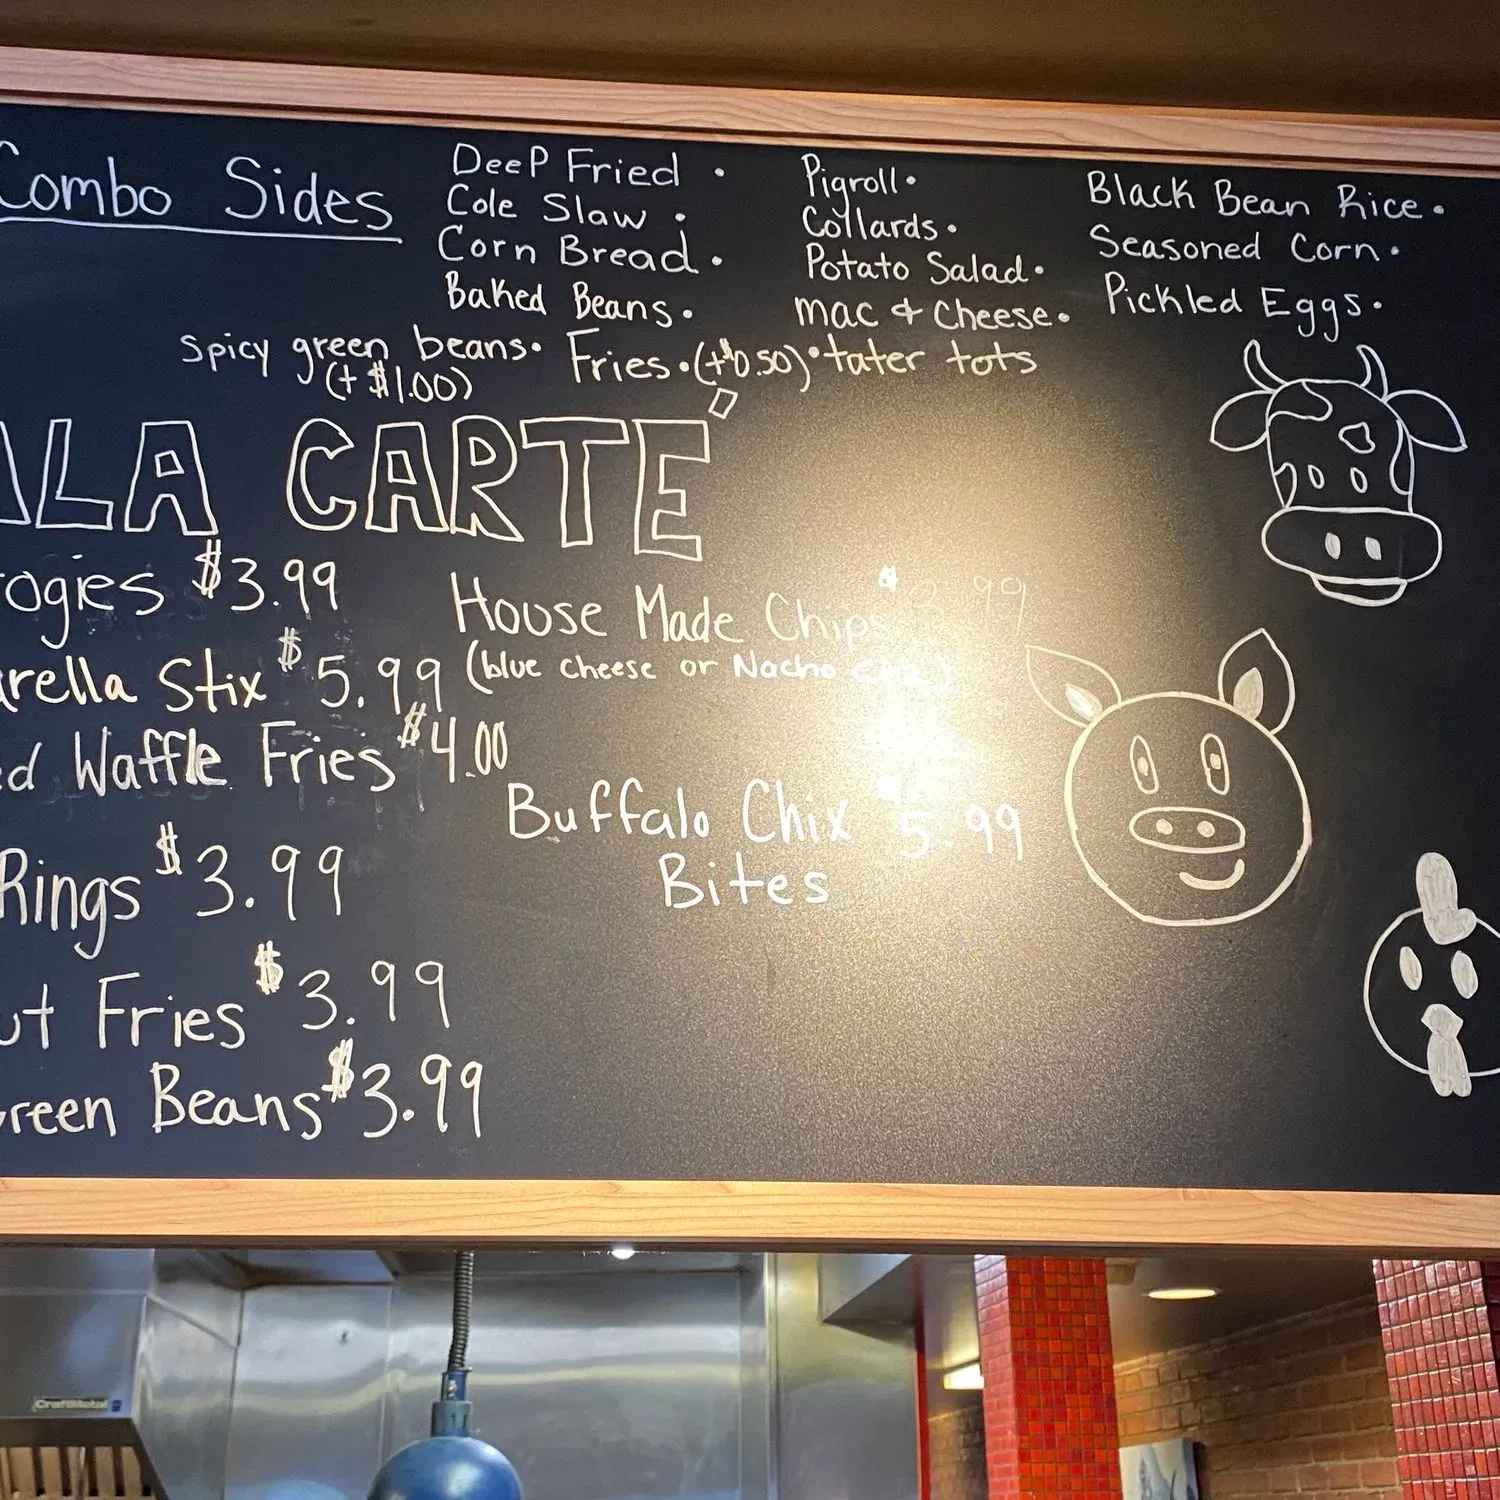 Combo Sides
Deep Fried •
Cole Slaw •
Corn Bread •
Baked Beans •
Pigroll •
Collards •
Potato Salad •
mac & cheese •
Black Bean Rice •
Seasoned Corn •
Pickled Eggs •
spicy green beans • Fries • (+$0.50) • tater tots
(+ $1.00)
ALA CARTE
ogies $3.99
arella Stix $5.99
ed Waffle Fries $4.00
Rings $3.99
ut Fries $3.99
reen Beans $3.99
House Made Chips
(blue cheese or Nacho
Buffalo Chix $5.99
Bites
CraftMetal